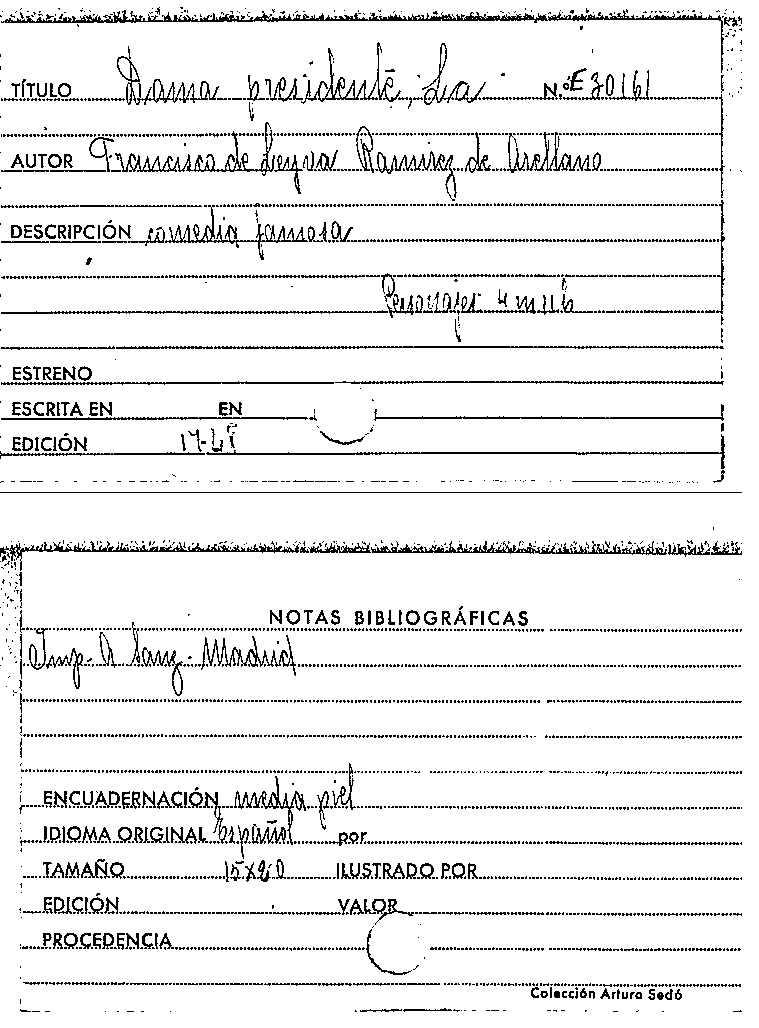 TÍTULO Dama presidente, La N.º E 30161
AUTOR Francisco de Leyva Ramirez de Arellano
DESCRIPCIÓN comedia famosa
Personajes 4 m
ESTRENO
ESCRITA EN EN
EDICIÓN
NOTAS BIBLIOGRÁFICAS
Imp. A Sanz - Madrid
ENCUADERNACIÓN media piel
IDIOMA ORIGINAL Español por
TAMAÑO 15x20 ILUSTRADO POR
EDICIÓN VALOR
PROCEDENCIA
Colección Arturo Sedó